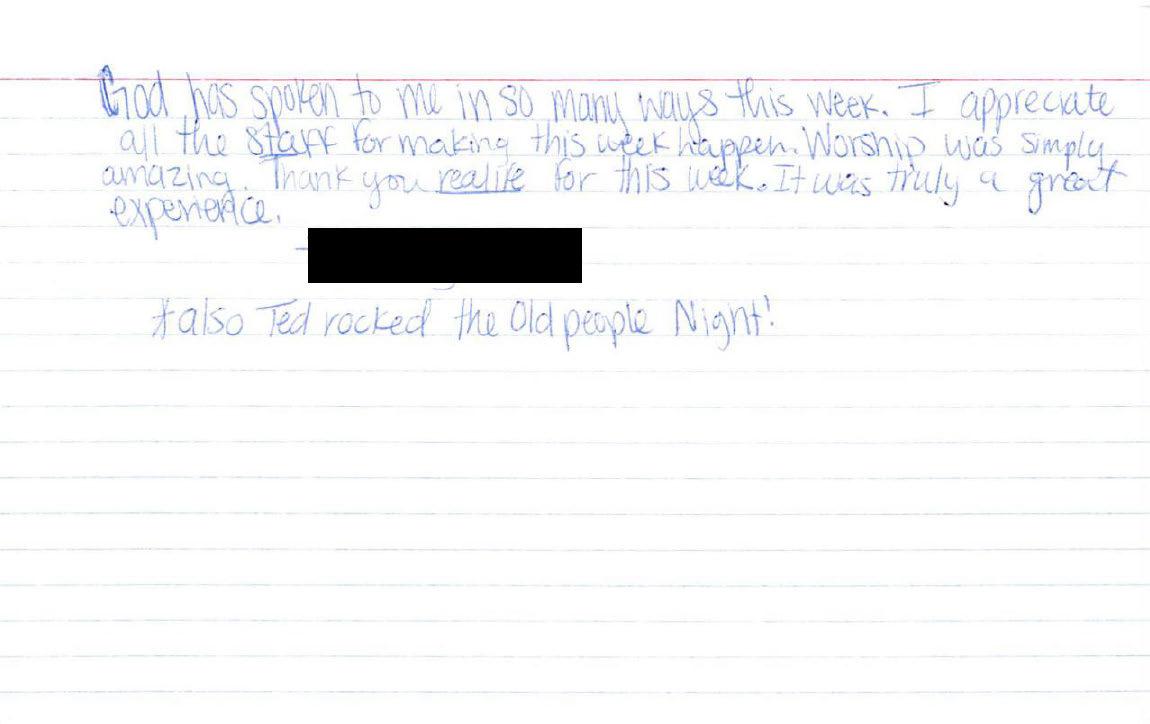 God has spoken to me in so many ways this week. I appreciate
all the staff for making this week happen. Worship was simply
amazing. Thank you realife for this week. It was truly a great
experience.
-
*also Ted rocked the Old people Night!